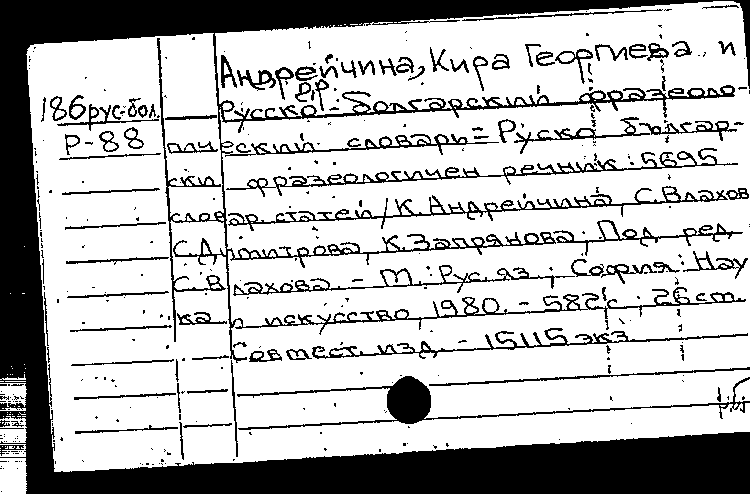 Андрейчина, Кира Георгиева и
др.
186 рус-бол. Русско-болгарский фразеоло-
Р-88 гический словарь = Руско българ-
ски фразеологичен речник : 5695
словар. статей / К. Андрейчина, С. Влахов,
С. Димитрова, К. Запрянова; Под ред.
С. Влахова. - М. : Рус. яз. ; София : Нау
ка и искусство, 1980. - 582 с ; 26 ст.
Совмест. изд. - 15115 экз.